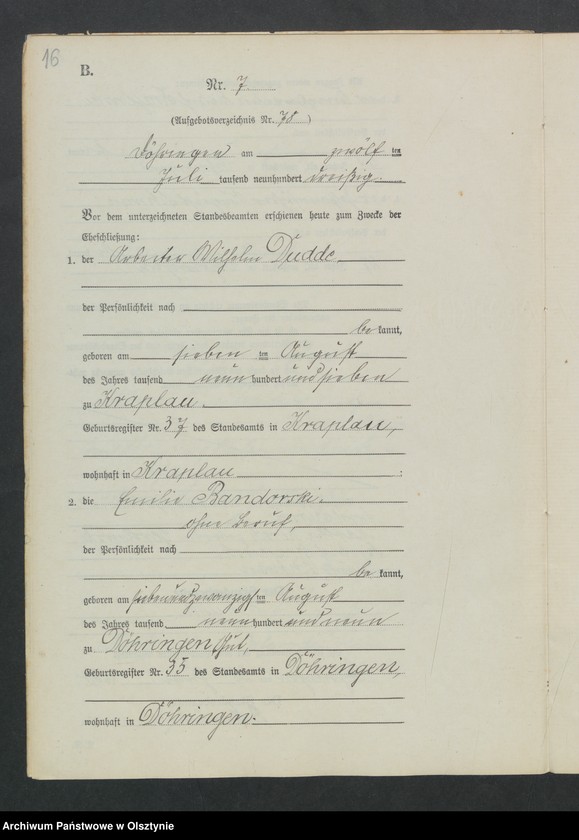 16
B.
Nr. 7.
(Aufgebotsverzeichnis Nr. 78)
Döhringen am zwölf ten
Juli tausend neunhundert dreißig.
Vor dem unterzeichneten Standesbeamten erschienen heute zum Zwecke der
Eheschließung:
1. der Arbeiter Wilhelm Dudde
der Persönlichkeit nach
be kannt,
geboren am sieben ten August
des Jahres tausend neun hundert und sieben
zu Kraplau.
Geburtsregister Nr. 37 des Standesamts in Kraplau,
wohnhaft in Kraplau
2. die Emilie Bandorski.
ohne Beruf,
der Persönlichkeit nach
be kannt,
geboren am siebenundzwanzigs ten August
des Jahres tausend neun hundert und neun
zu Döhringen Gut,
Geburtsregister Nr. 35 des Standesamts in Döhringen,
wohnhaft in Döhringen.
Archiwum Państwowe w Olsztynie